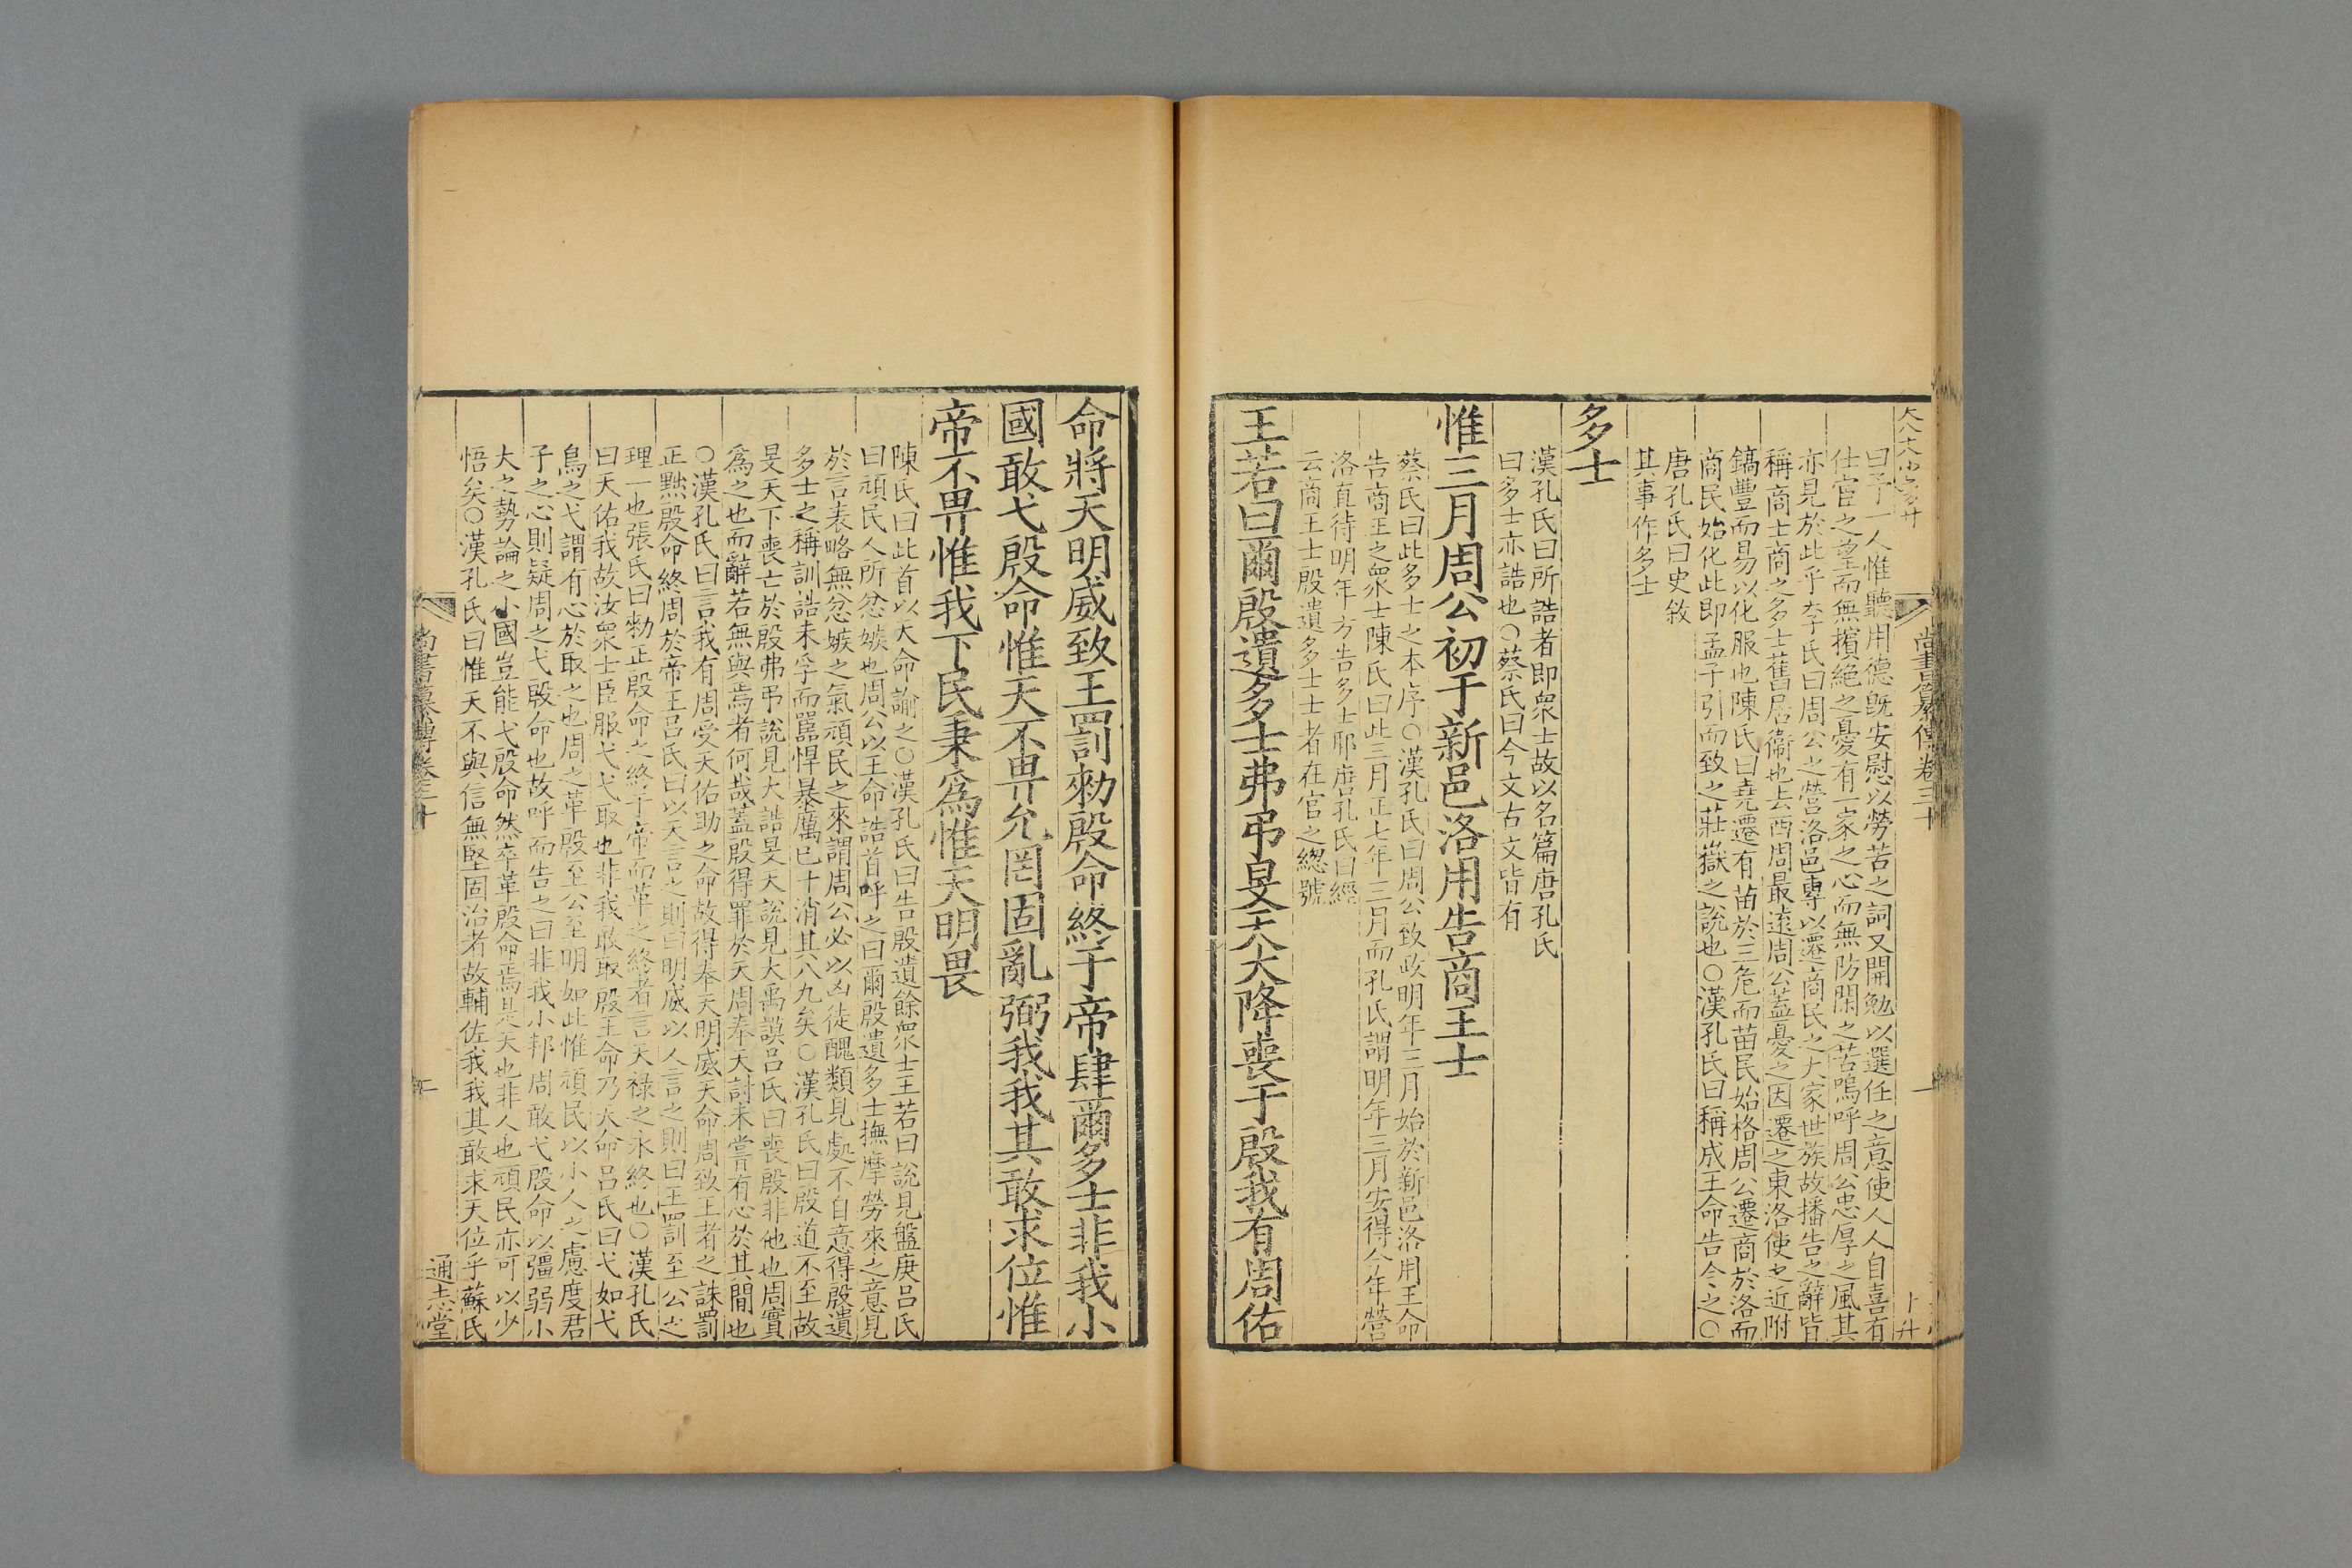 尚書纂傳卷三十
一
曰予一人惟聽用德既安慰以勞苦之詞又開勉以選任之意使人人自喜有
仕宦之望而無擯絕之憂有一家之心而無防閑之苦嗚呼周公忠厚之風其
亦見於此乎李氏曰周公之營洛邑專以遷商民之大家世族故播告之辭皆
稱商士商之多士舊居衞也去西周最遠周公蓋憂之因遷之東洛使之近附
鎬豐而易以化服也陳氏曰堯遷有苗於三危而苗民始格周公遷商於洛而
商民始化此即孟子引而致之莊嶽之說也○漢孔氏曰稱成王命告令之○
唐孔氏曰史敘
其事作多士
多士
漢孔氏曰所誥者即衆士故以名篇唐孔氏
曰多士亦誥也○蔡氏曰今文古文皆有
惟三月周公初于新邑洛用告商王士
蔡氏曰此多士之本序○漢孔氏曰周公致政明年三月始於新邑洛用王命
告商王之衆士陳氏曰此三月正七年三月而孔氏謂明年三月安得今年營
洛直待明年方告多士耶唐孔氏曰經
云商王士殷遺多士士者在官之總號
王若曰爾殷遺多士弗弔旻天大降喪于殷我有周佑
命將天明威致王罰勑殷命終于帝肆爾多士非我小
國敢弋殷命惟天不畀允罔固亂弼我我其敢求位惟
帝不畀惟我下民秉爲惟天明畏
陳氏曰此首以天命諭之○漢孔氏曰告殷遺餘衆士王若曰說見盤庚呂氏
曰頑民人所忿嫉也周公以王命誥首呼之曰爾殷遺多士撫摩勞來之意見
於言表略無忿嫉之氣頑民之來謂周公必以凶徒醜類見處不自意得殷遺
多士之稱訓誥未孚而嚚悍暴厲已十消其八九矣○漢孔氏曰殷道不至故
旻天下喪亡於殷弗弔說見大誥旻天說見大禹謨呂氏曰喪殷非他也周實
爲之也而辭若無與焉者何哉蓋殷得罪於天周奉天討未嘗有心於其間也
○漢孔氏曰言我有周受天佑助之命故得奉天明威天命周致王者之誅罰
正黜殷命終周於帝王呂氏曰以天言之則曰明威以人言之則曰王罰至公之
理一也張氏曰勑正殷命之終于帝而革之終者言天禄之永終也○漢孔氏
曰天佑我故汝衆士臣服弋弋取也非我敢取殷王命乃天命呂氏曰弋如弋
鳥之弋謂有心於取之也周之革殷至公至明如此惟頑民以小人之慮度君
子之心則疑周之弋殷命也故呼而告之曰非我小邦周敢弋殷命以彊弱小
大之勢論之小國豈能弋殷命然卒革殷命焉是天也非人也頑民亦可以少
悟矣○漢孔氏曰惟天不與信無堅固治者故輔佐我我其敢求天位乎蘇氏
尚書纂傳卷三十
二
通志堂